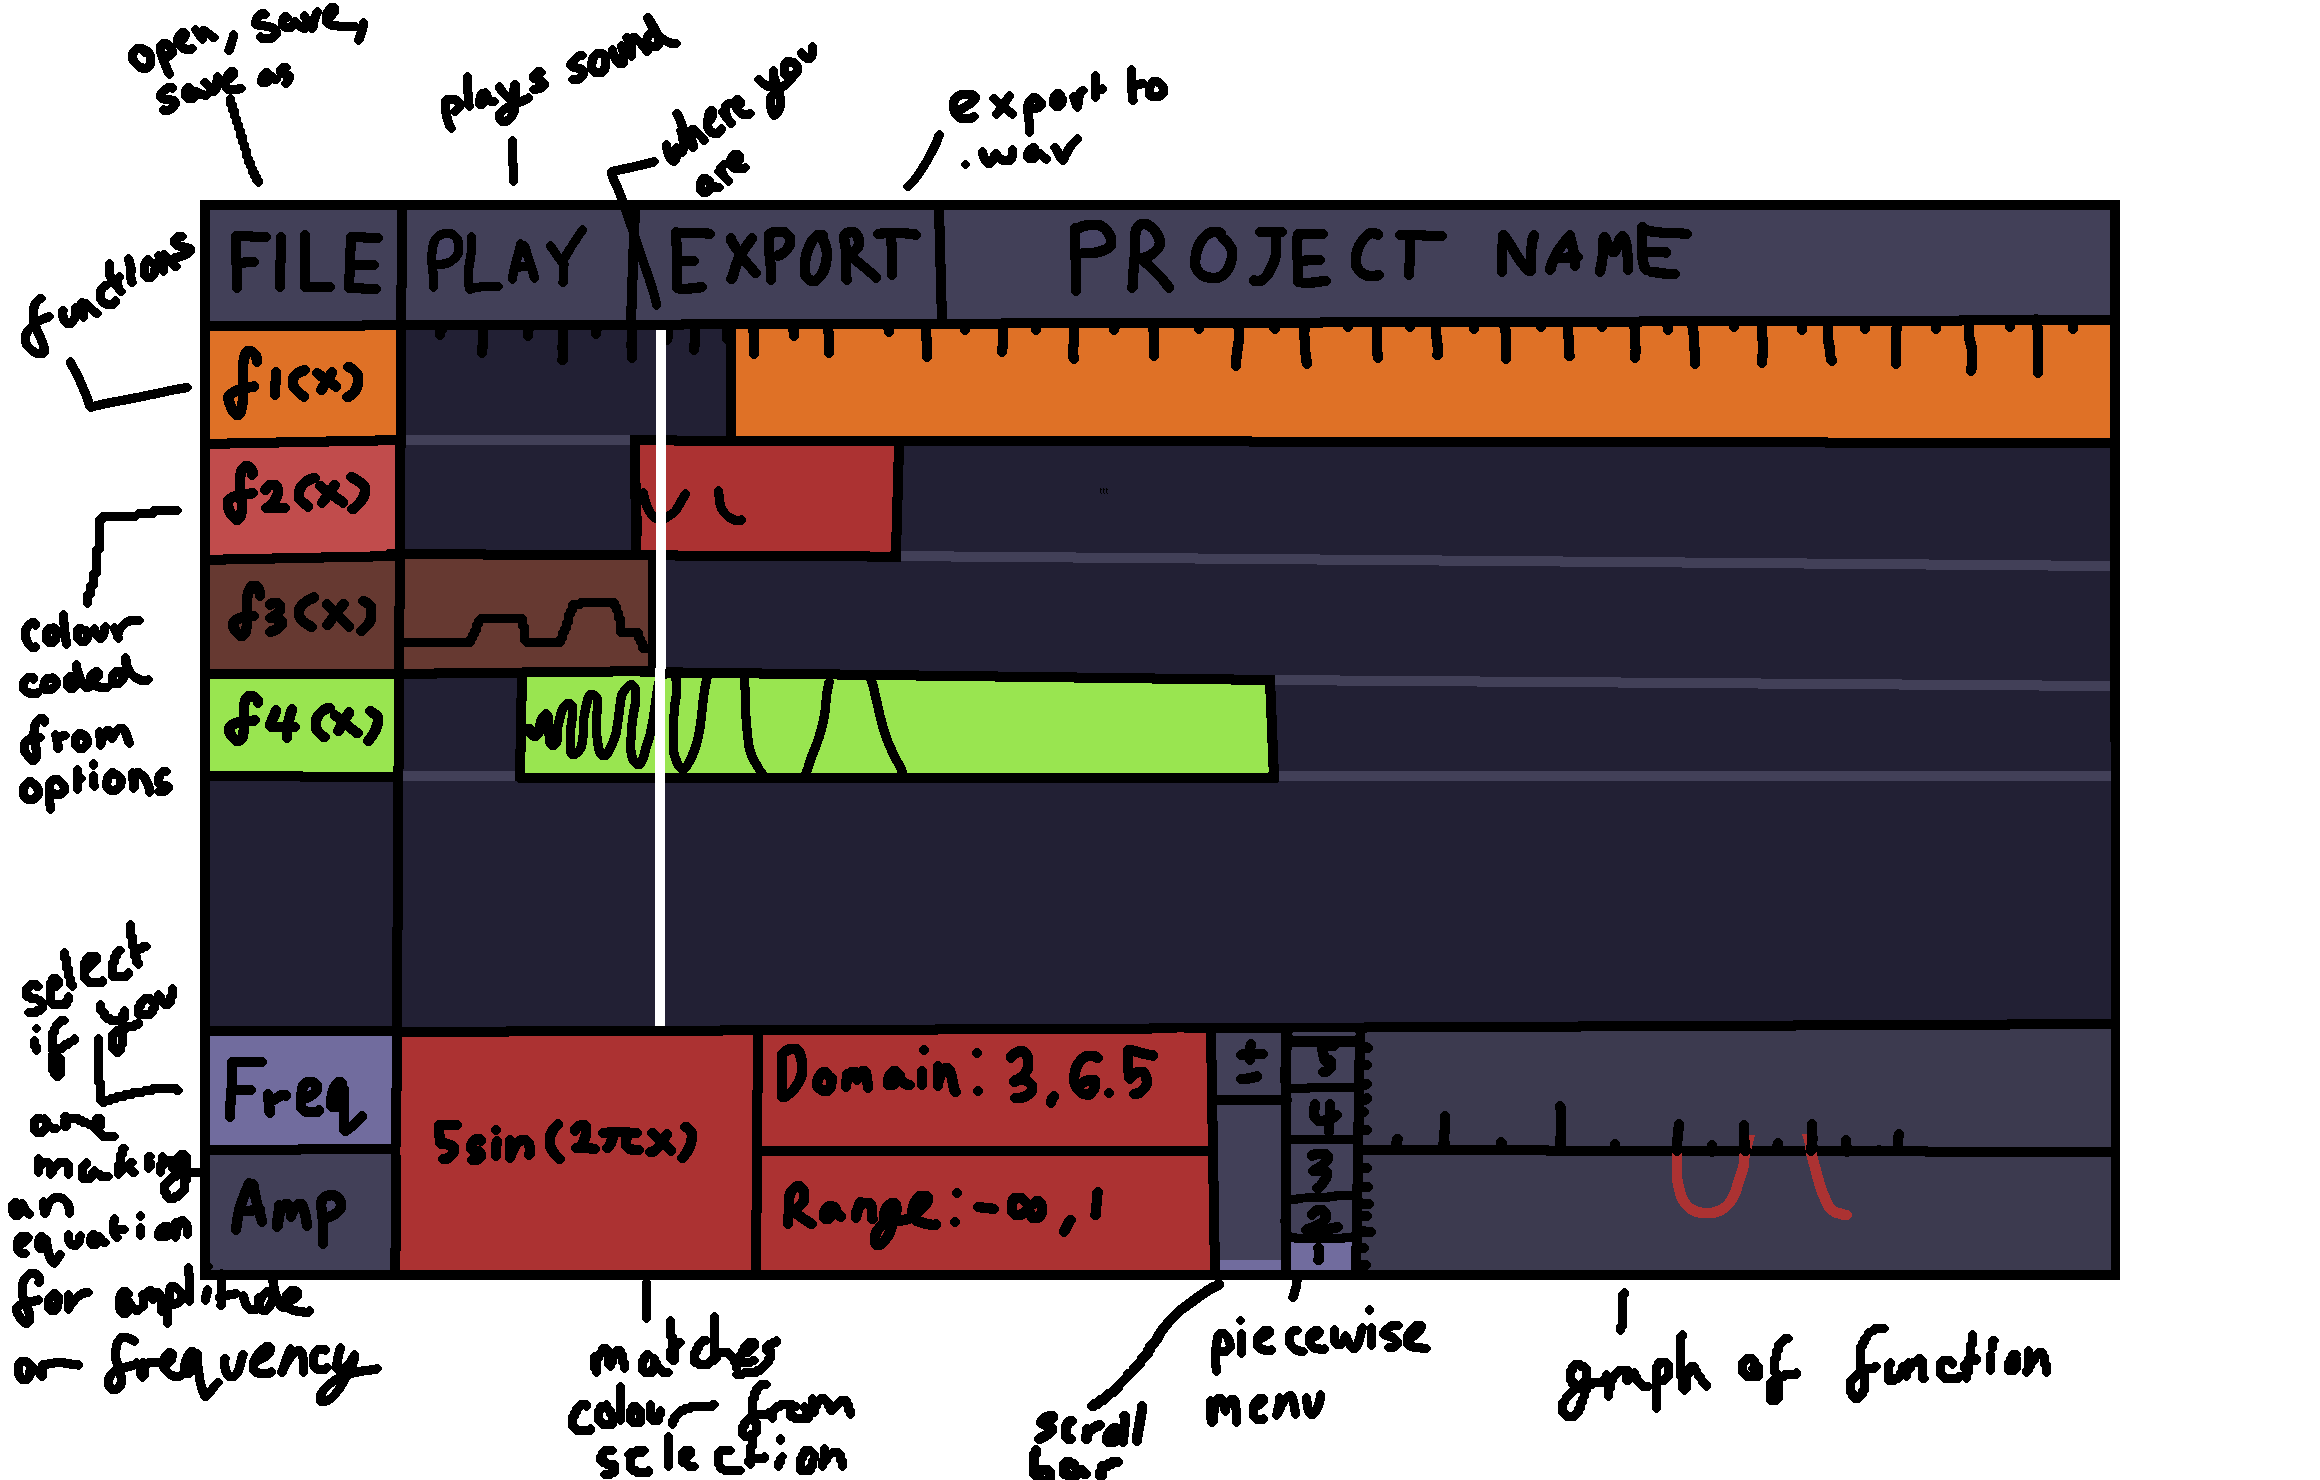 open, save,
save as
plays sound
where you
are
export to
.wav
functions
FILE
PLAY
EXPORT
PROJECT NAME
f1(x)
f2(x)
f3(x)
f4(x)
colour
coded
from
options
select
if you
are
making
an
equation
for amplitude
or frequency
Freq
Amp
5sin(2πx)
Domain: 3,6.5
Range: -∞, 1
±
5
4
3
2
1
matches
colour from
selection
scroll
bar
piecewise
menu
graph of function